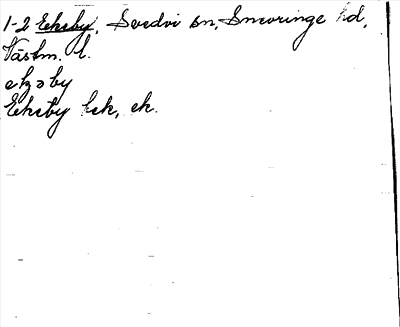 1-2 Eksby, Svedvi sn, Snevringe hd,
Västm. l.
ekəby
Eksby bek, ek.